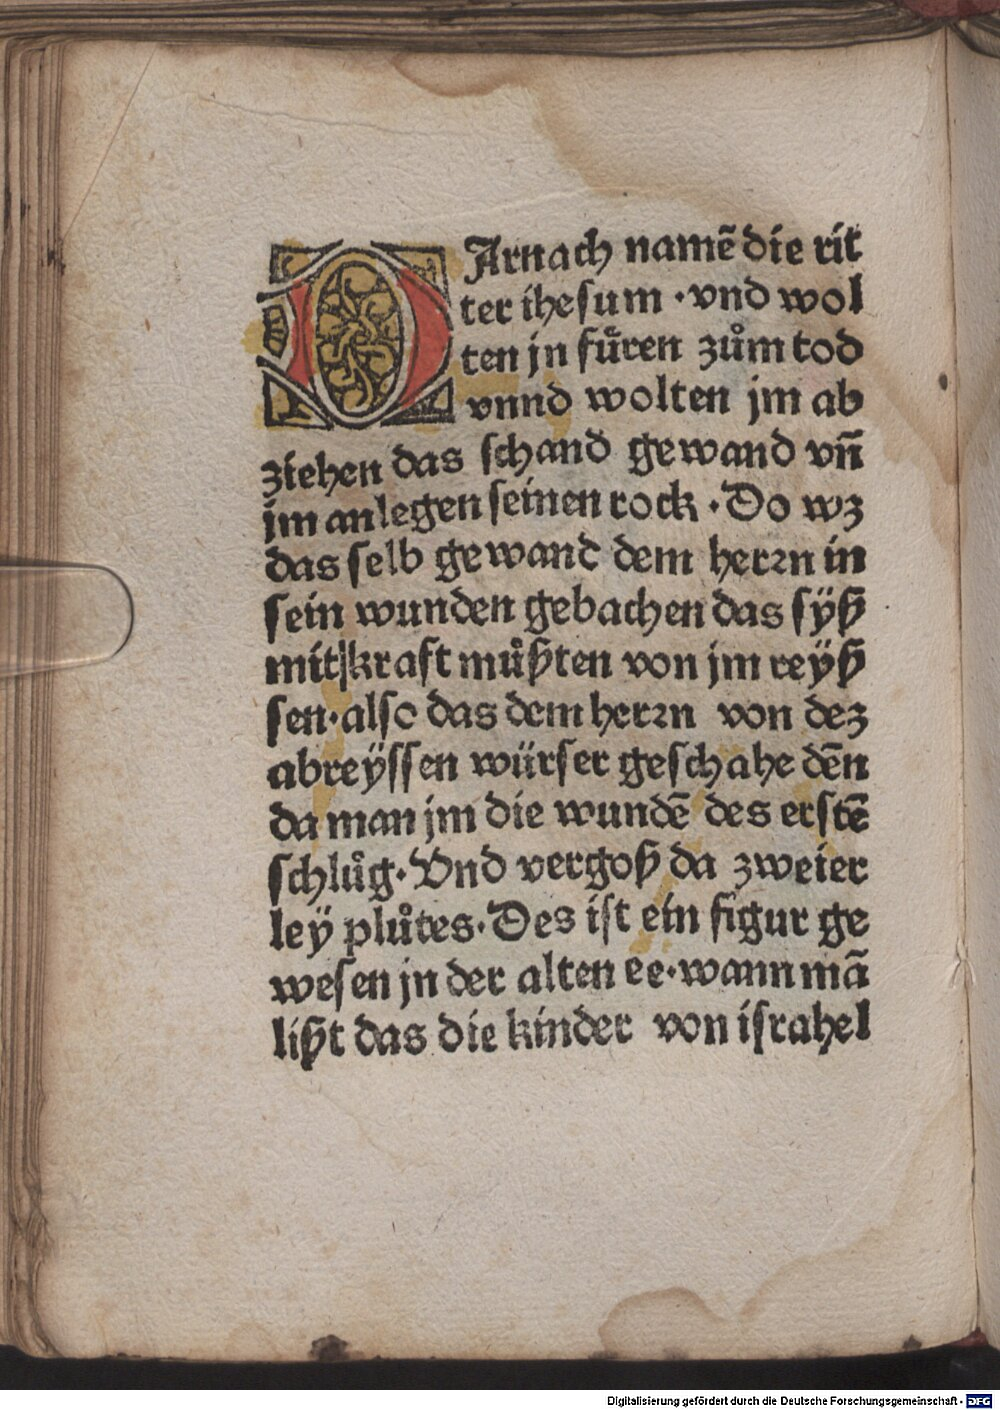 DArnach namē die rit
ter ihesum · vnd wol
ten jn fürͤen zům tod
vnnd wolten jm ab
ziehen das schand gewand vn̄
jm anlegen seinen rock · Do wz
das selb gewand dem herrn in
sein wunden gebachen das sÿß
mit kraft můßten von jm reyß
sen · also das dem herrn von dez
abreÿssen würser geschahe dēn
da man jm die wundē des erstē
schlůg · Vnd vergoß da zweier
leÿ plůtes · Des ist ein figur ge
wesen jn der alten ee · wann mā
lißt das die kinder von israhel
Digitalisierung gefördert durch die Deutsche Forschungsgemeinschaft - DFG